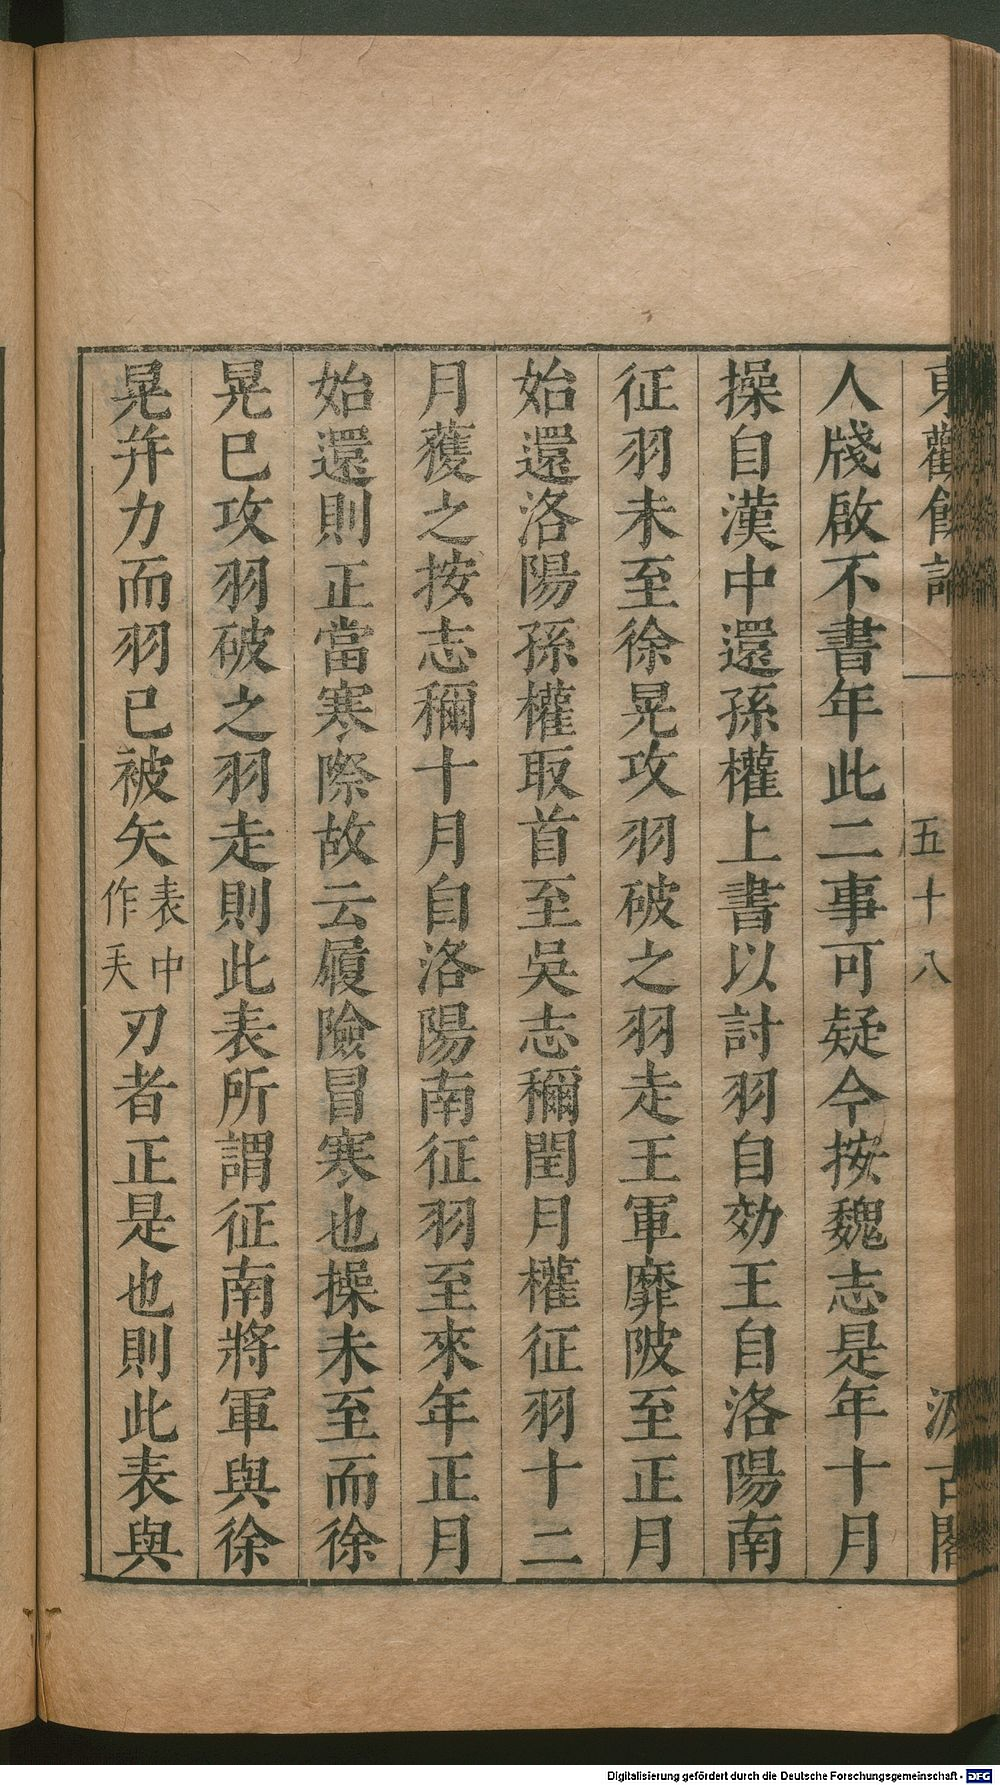 東觀餘論
五十八
汲古閣
人牋啟不書年此二事可疑今按魏志是年十月
操自漢中還孫權上書以討羽自効王自洛陽南
征羽未至徐晃攻羽破之羽走王軍靡陂至正月
始還洛陽孫權取首至吳志稱閏月權征羽十二
月獲之按志稱十月自洛陽南征羽至來年正月
始還則正當寒際故云履險冒寒也操未至而徐
晃巳攻羽破之羽走則此表所謂征南將軍與徐
晃并力而羽巳被矢表中作天刃者正是也則此表與
Digitalisierung gefördert durch die Deutsche Forschungsgemeinschaft - DFG